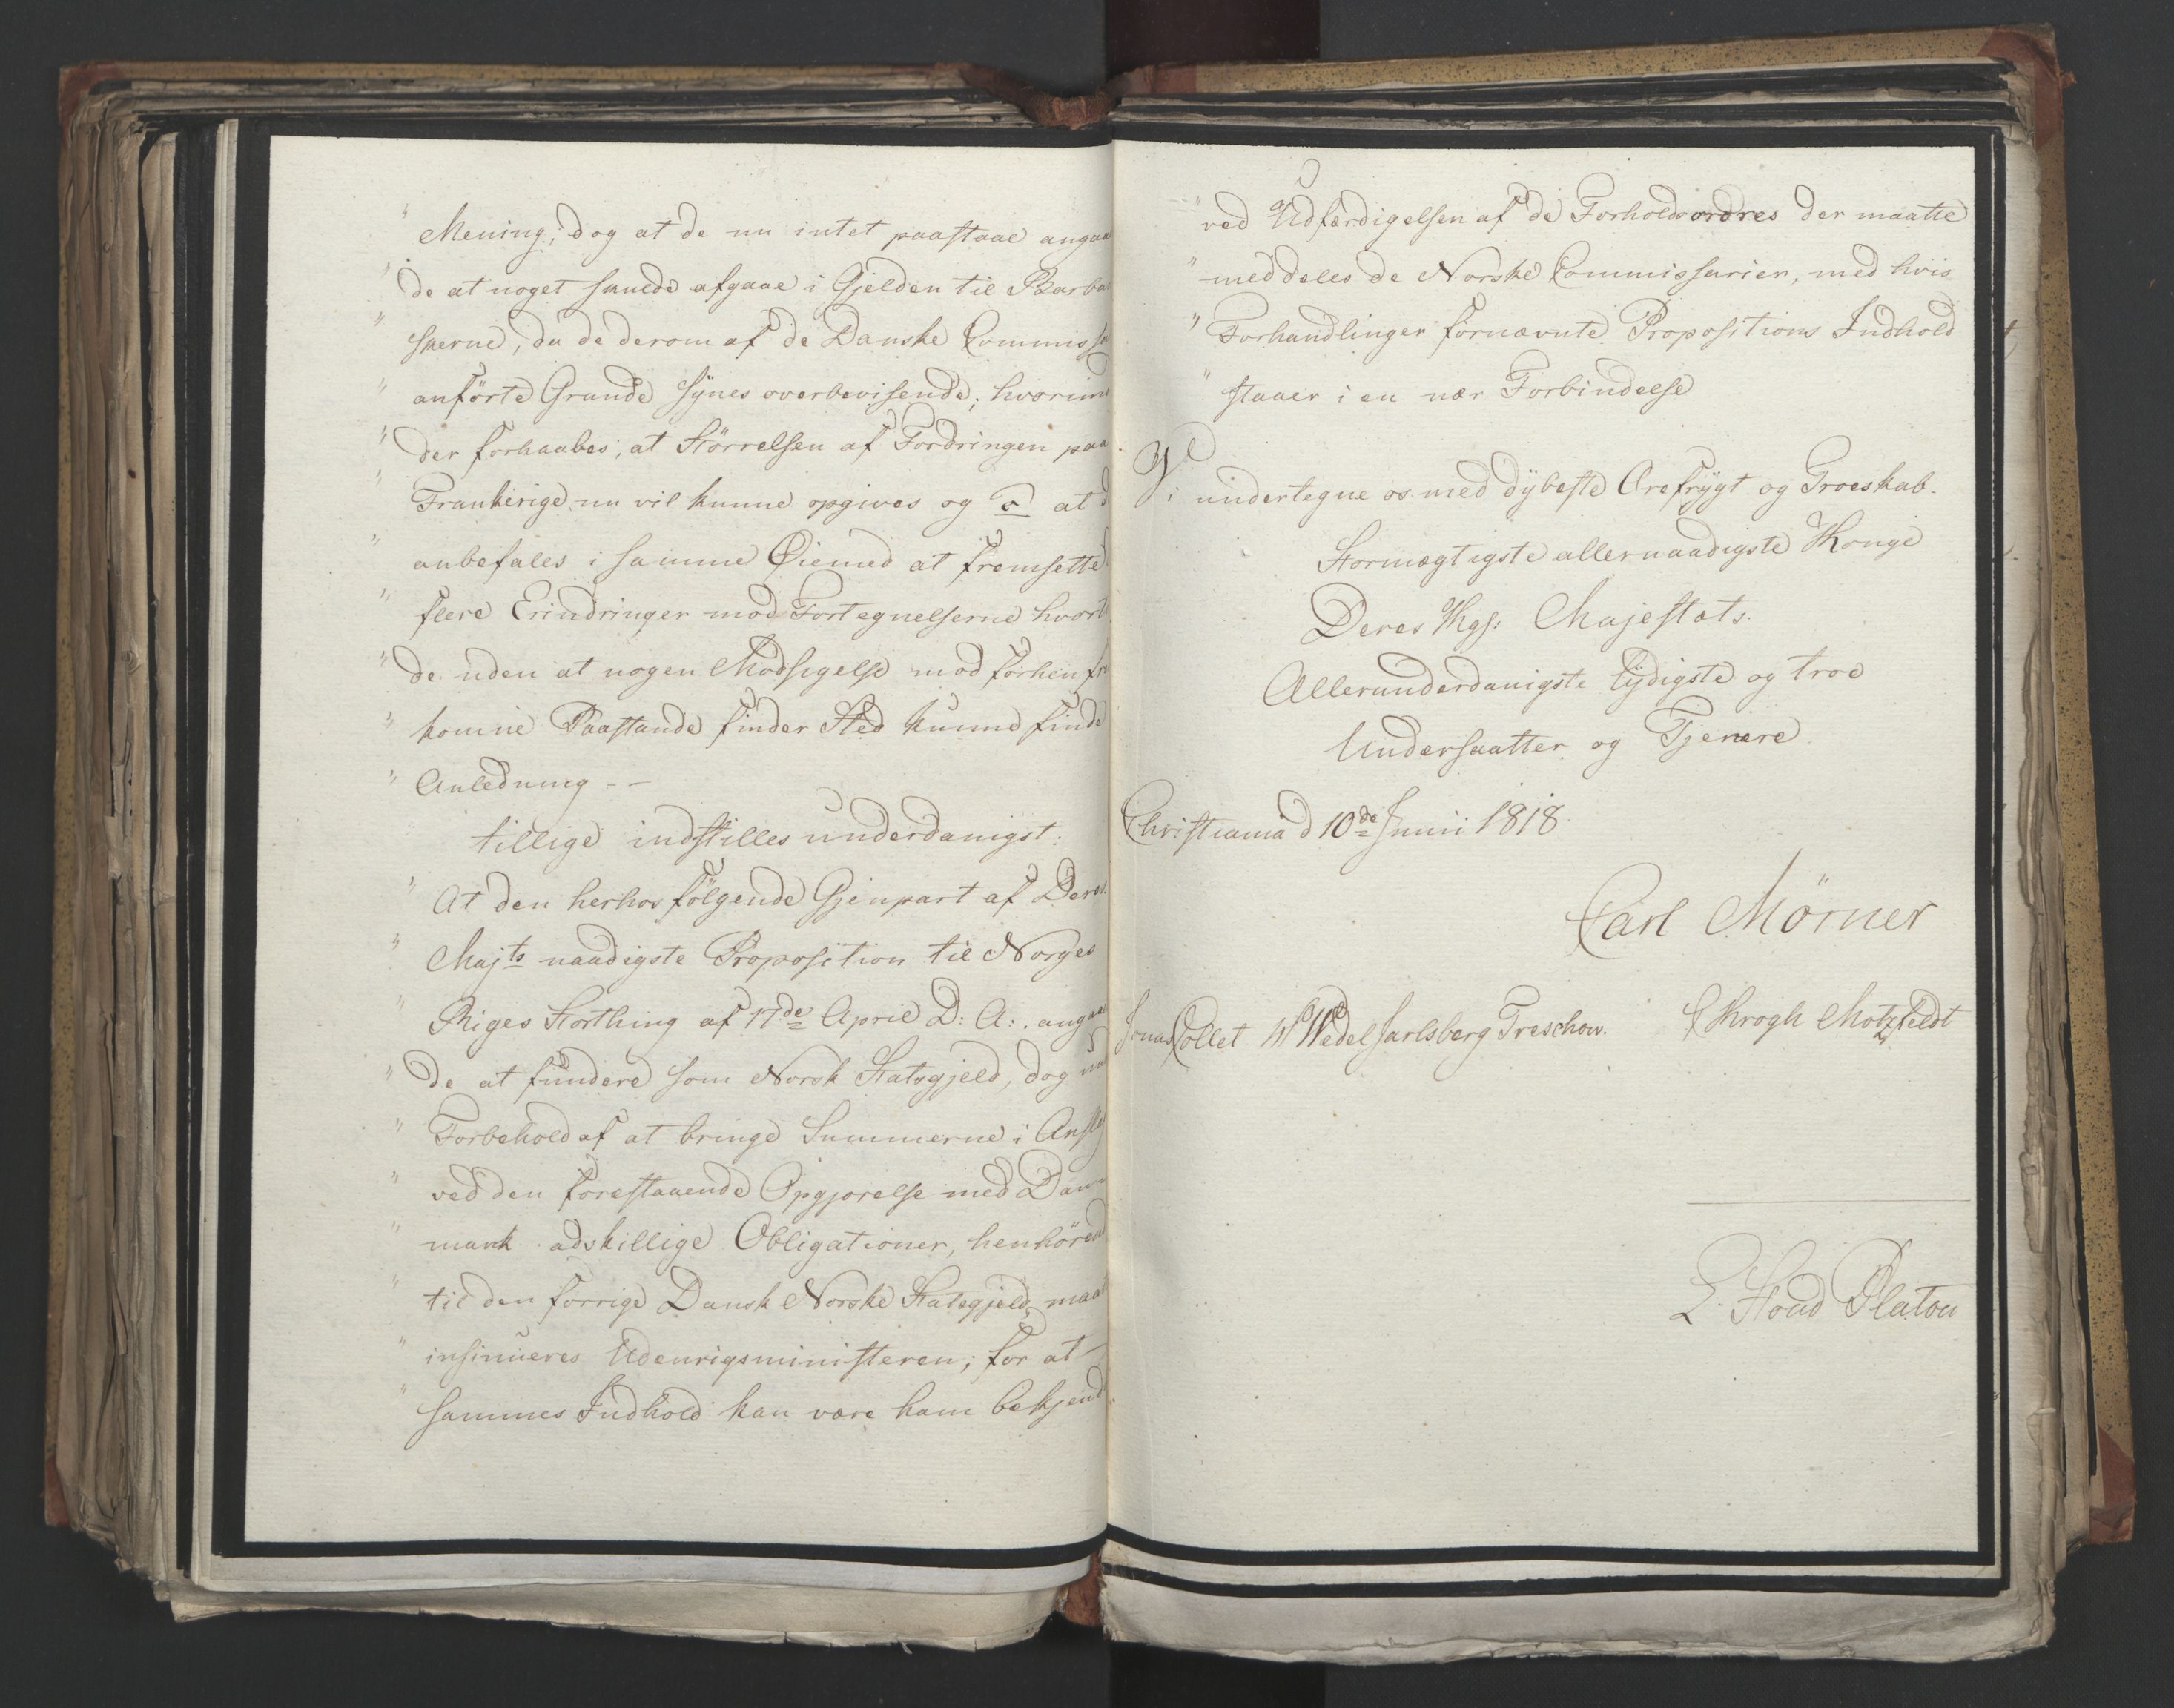 " Mening; dog at de nu intet paastaae angaa
" de at noget skulde afgaae i Gjelden til Barba
" skerne, da de derom af de Danske Commiss
" anförte Grunde synes overbevisende; hvorimo
" der forhaabes, at Störrelsen af Fordringen paa
" Frankerige nu vil kunne opgives og at
" anbefales i samme Øiemed at fremsette
" flere Erindringer mod Fortegnelserne hvort
" de uden at nogen Modsigelse mod forhen fre
" komne Paastande finder Sted kunne finde
" Anledning --
tillige indstilles underdanigst:
" At den herhos fölgende Gjenpart af Deres
" Majts naadigste Proposition til Norges
" Riges Storthing af 17de April D: A:. angaae
" de at fundere som Norsk Statsgjeld, dog
" Forbehold af at bringe Summerne i Ansla
" ved den forestaaende Opgjørelse med Dan
" mark adskillige Obligationer, henhörend
" til den forrige Dansk Norske Statsgjeld, maa
" insinueres Udenrigsministeren; for at
" sammes Indhold kan være ham bekjend
" ved Udfærdigelsen af de Forholdsordres der maatte
" meddeles de Norske Commissarier, med hvis
" Forhandlinger fornævnte Propositions Indhold
" staaer i en nær Forbindelse
Vi undertegne os med dÿbeste Ærefrÿgt og Troeskab.
Stormægtigste allernaadigste Konge
Deres Kgs: Majestæts.
Allerunderdanigste lÿdigste og troe
Undersaatter og Tjenere
Christiania d 10de Junii 1818.
Carl Mörner
Jonas Collet W Wedel Jarlsberg Treschow. C Krogh Motzfeldt
L. Stoud Platou